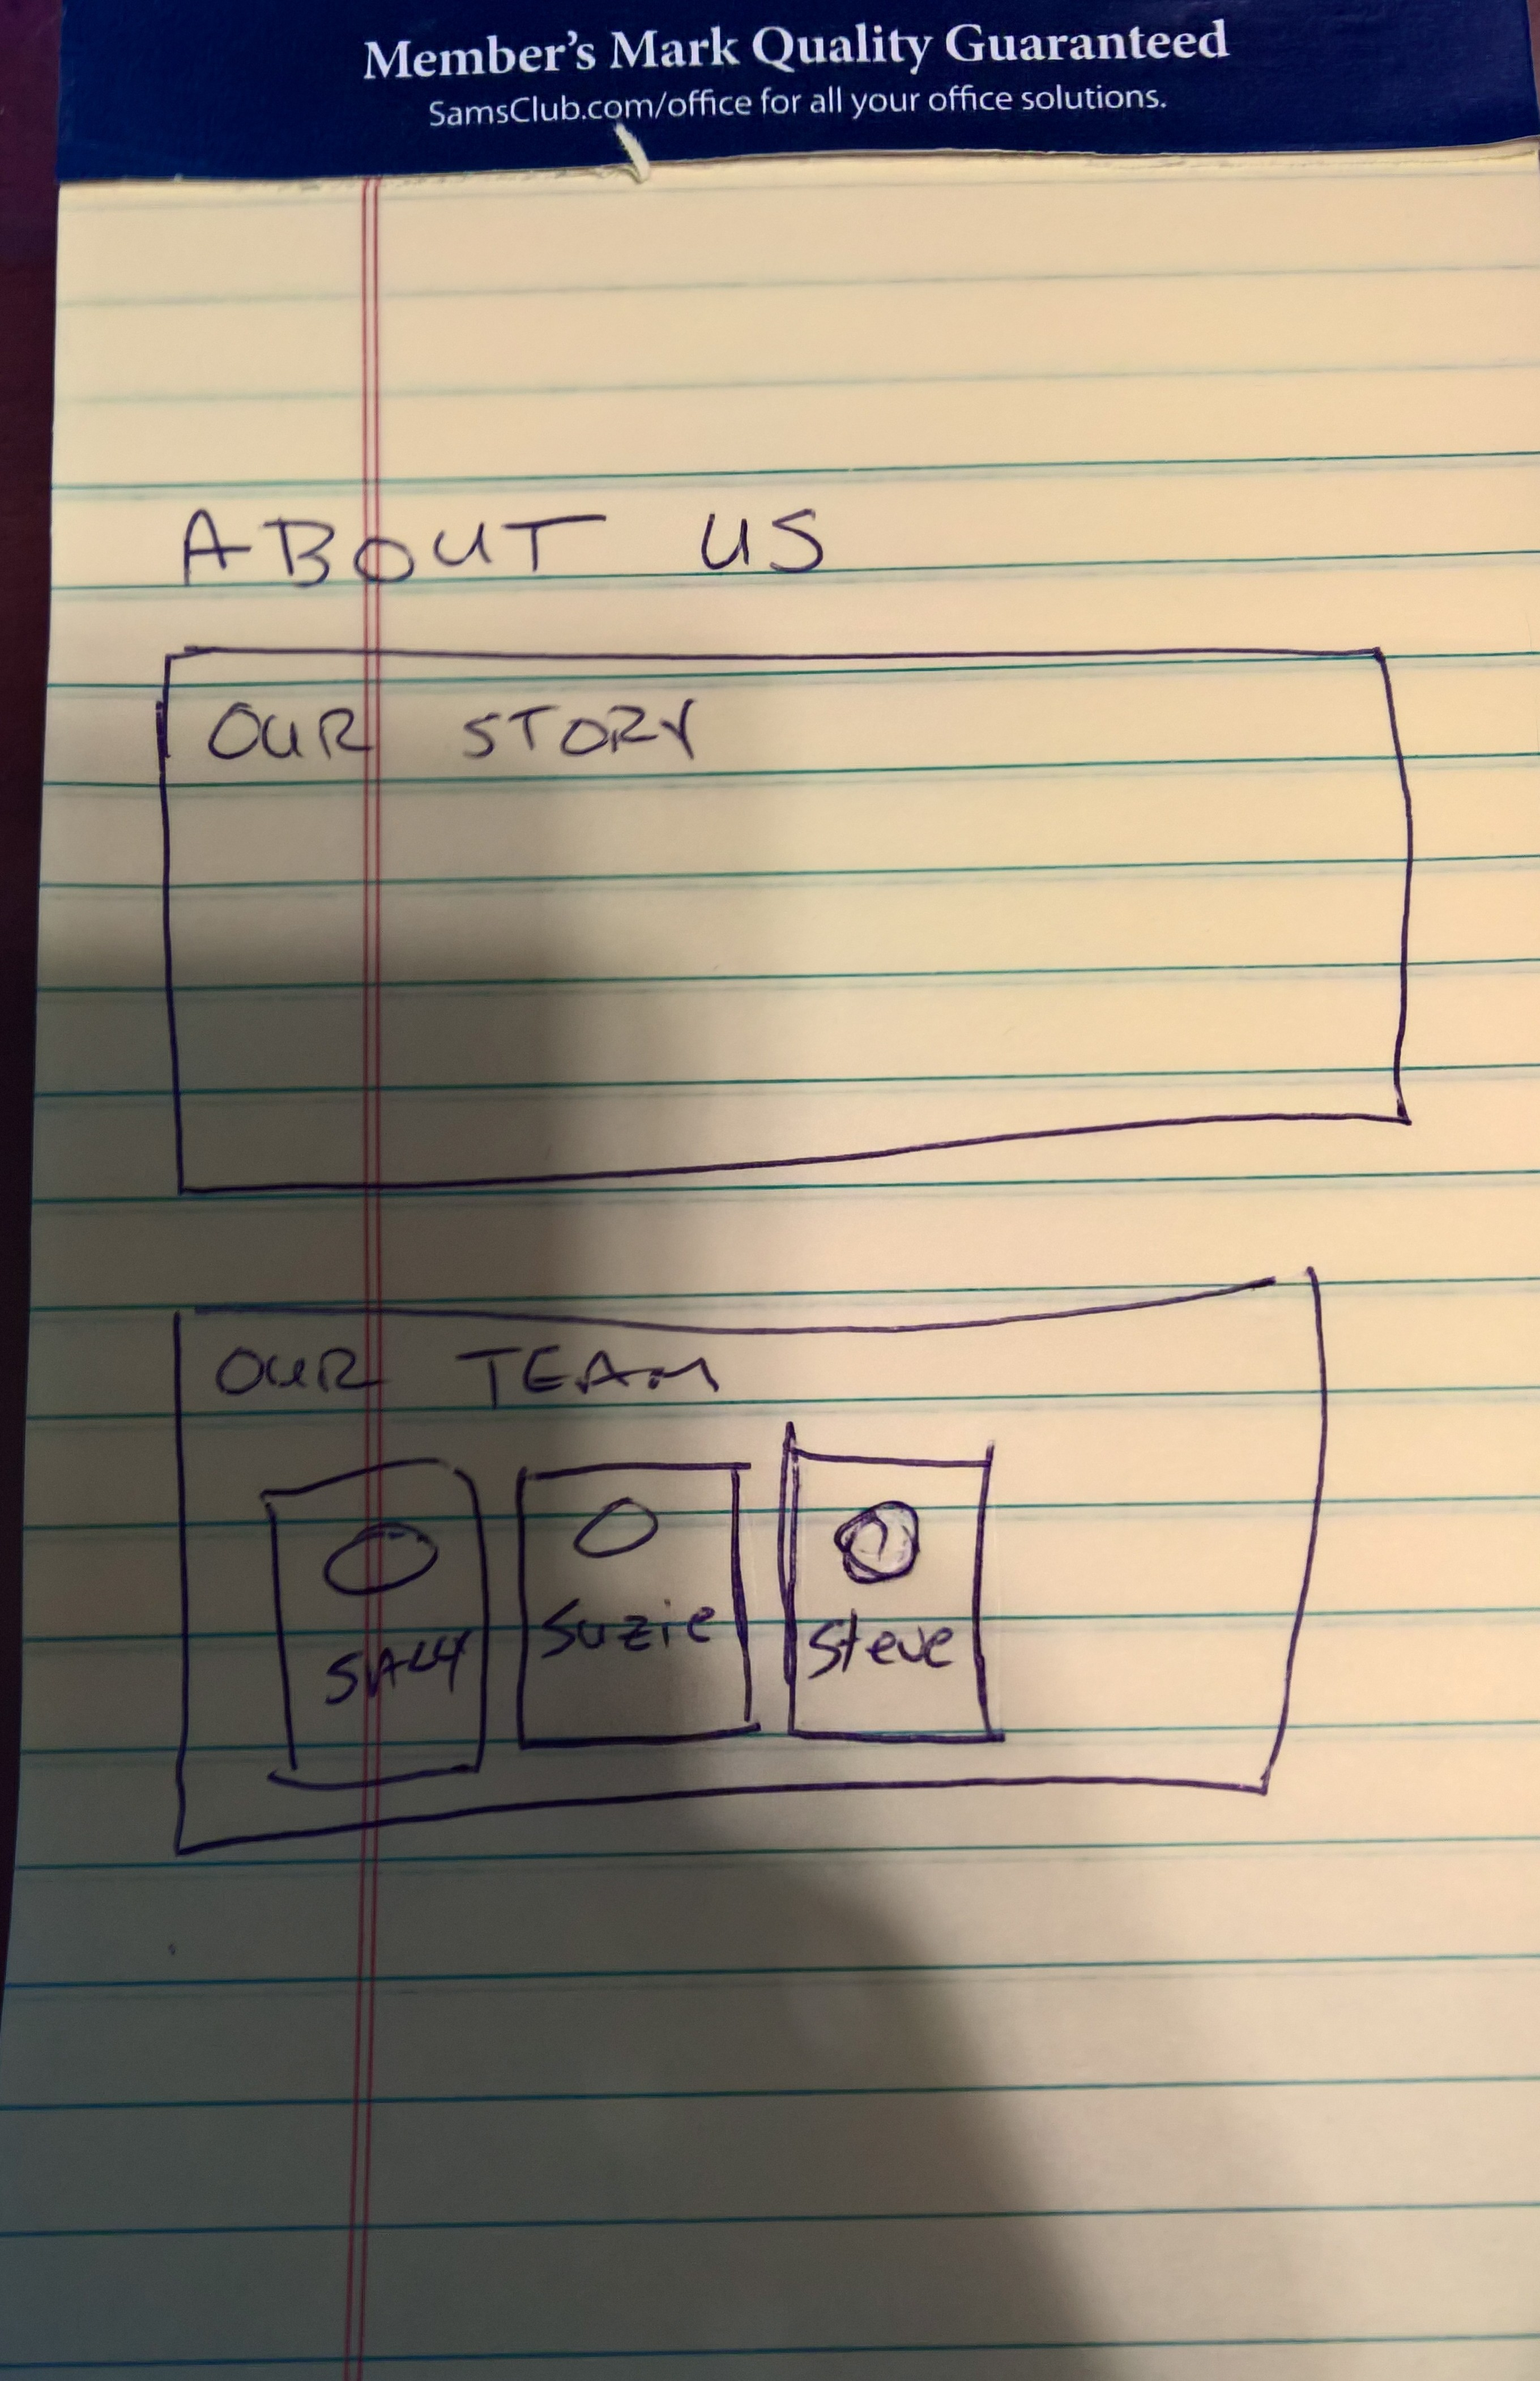 Member's Mark Quality Guaranteed
SamsClub.com/office for all your office solutions.
ABOUT US
OUR STORY
OUR TEAM
SALLY
Suzie
Steve